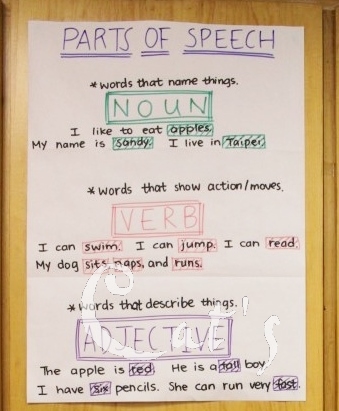 PARTS OF SPEECH
*words that name things.
NOUN
I like to eat apples.
My name is Sandy. I live in Taipei.
*words that show action/moves.
VERB
I can swim. I can jump. I can read.
My dog sits, naps, and runs.
*words that describe things.
ADJECTIVE
Cat's
The apple is red. He is a tall boy.
I have six pencils. She can run very fast.